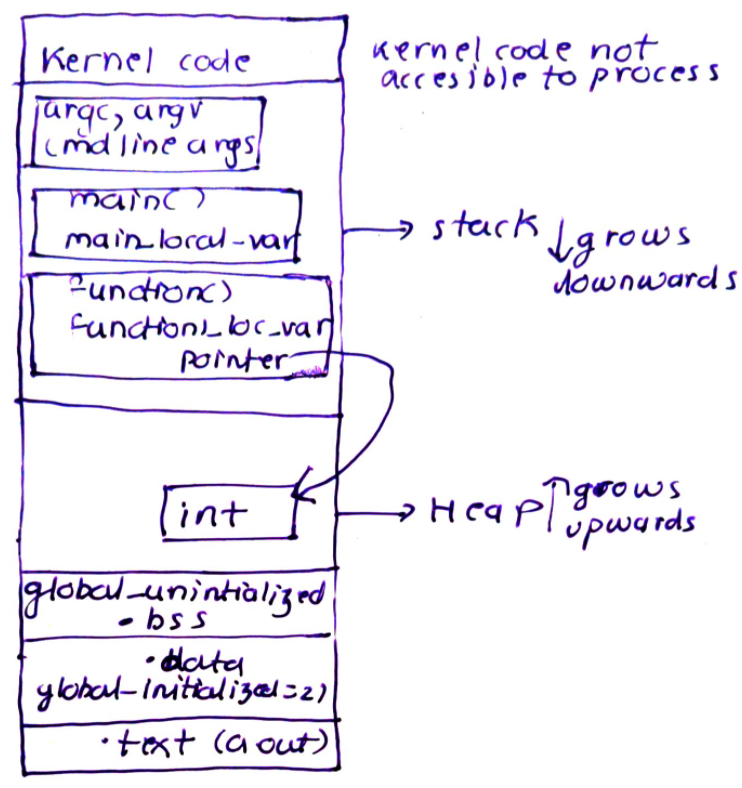 Kernel code
kernel code not
accesible to process
argc, argv
cmd line args
main()
main_local_var
stack ↓ grows
downwards
function()
function1_loc_var
pointer
int
Heap ↑ grows
upwards
global_unintialized
.bss
.data
global-initialized=2)
.text (a out)